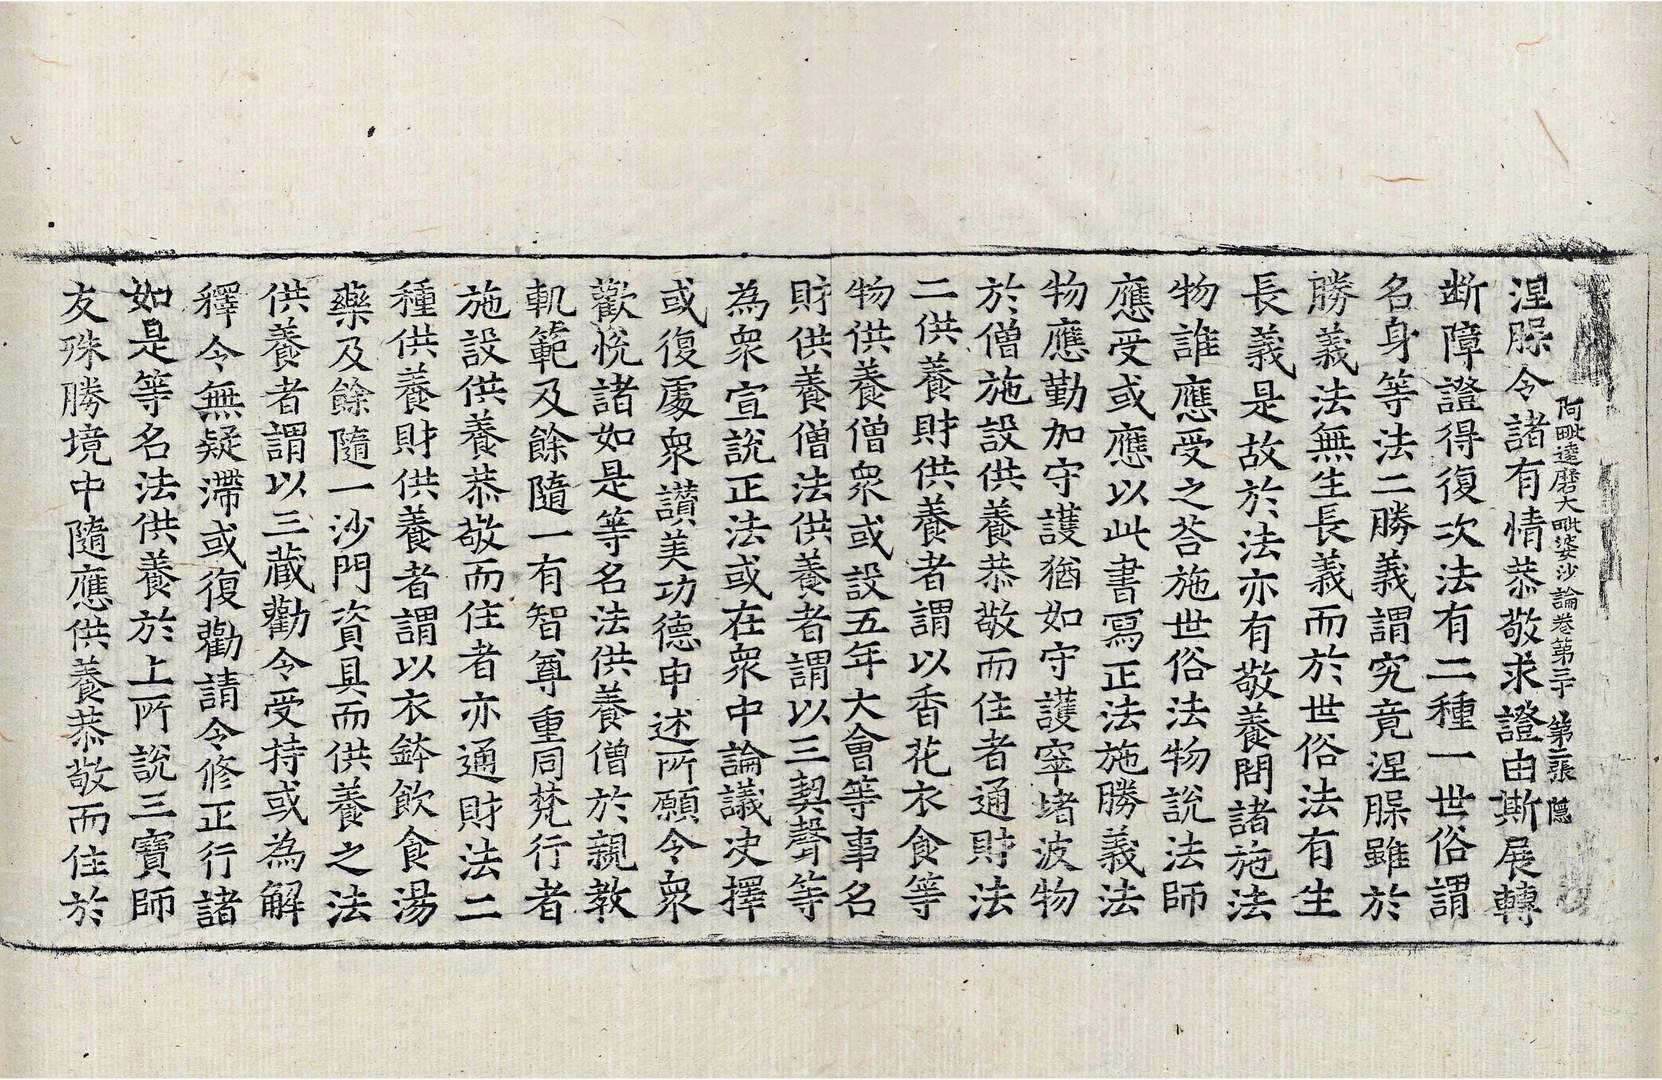 阿毗達磨大毗婆沙論卷第三十　第二張　隱
涅槃令諸有情恭敬求證由斯展轉
断障證得復次法有二種一世俗謂
名身等法二勝義謂究竟涅槃雖於
勝義法無生長義而於世俗法有生
長義是故於法亦有敬養問諸施法
物誰應受之荅施世俗法物說法師
應受或應以此書寫正法施勝義法
物應勤加守護猶如守護窣堵波物
於僧施設供養恭敬而住者通財法
二供養財供養者謂以香花衣食等
物供養僧衆或設五年大會等事名
財供養僧法供養者謂以三契聲等
為衆宣說正法或在衆中論議決擇
或復處衆讃美功德申述所願令衆
歡悅諸如是等名法供養僧於親教
軌範及餘隨一有智尊重同梵行者
施設供養恭敬而住者亦通財法二
種供養財供養者謂以衣鉢飲食湯
藥及餘隨一沙門資具而供養之法
供養者謂以三藏勸令受持或為解
釋令無疑滯或復勸請令修正行諸
如是等名法供養於上所說三寶師
友殊勝境中隨應供養恭敬而住於